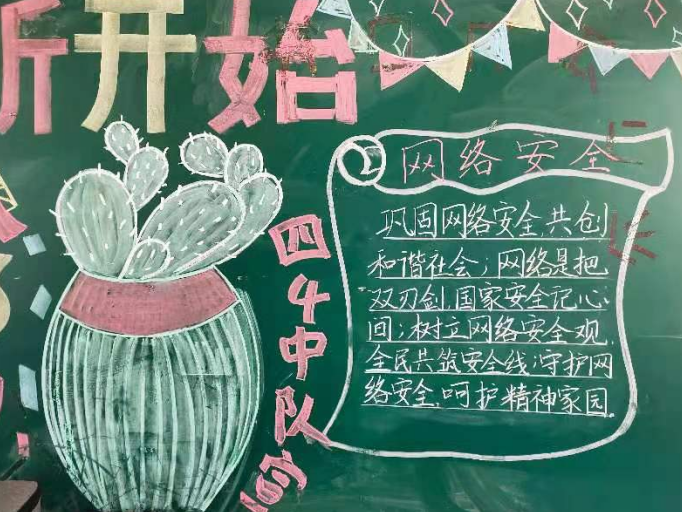 新开始
网络安全
巩固网络安全,共创
和谐社会;网络是把
双刃剑,国家安全记心
间;树立网络安全观,
全民共筑安全线;守护网
络安全,呵护精神家园.
四4中队